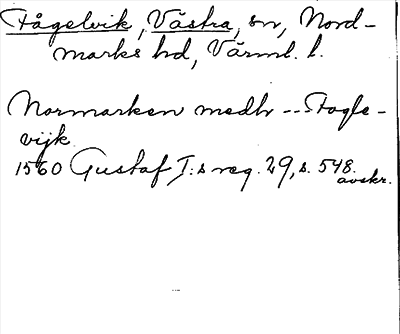 Fågelvik, Västra, sn, Nord-
marks hd, Värml. l.
Normarken medh -- Fogle-
vijk
1560 Gustaf I:s reg. 29, s. 548.
avskr.